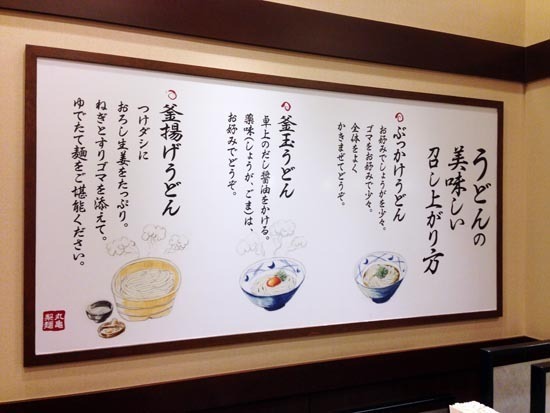 うどんの
美味しい
召し上がり方
ぶっかけうどん
お好みでしょうがを少々。
ゴマをお好みで少々。
全体をよく
かきまぜてどうぞ。
釜玉うどん
卓上のだし醤油をかける。
薬味(しょうが、ごま)は、
お好みでどうぞ。
釜揚げうどん
つけダシに
おろし生姜をたっぷり。
ねぎとすりゴマを添えて。
ゆでたて麺をご堪能ください。
丸亀
製麺